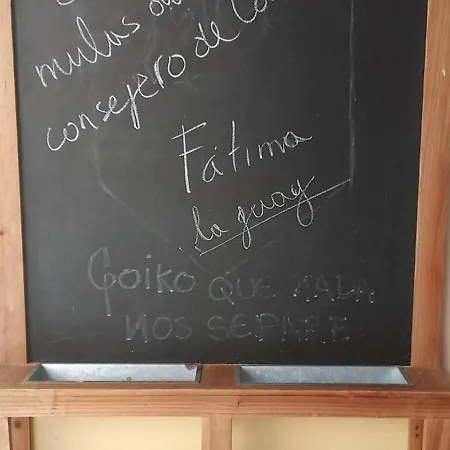 mulas
consejero de
Fátima
la guay
Goiko QUE NADA
NOS SEPARE